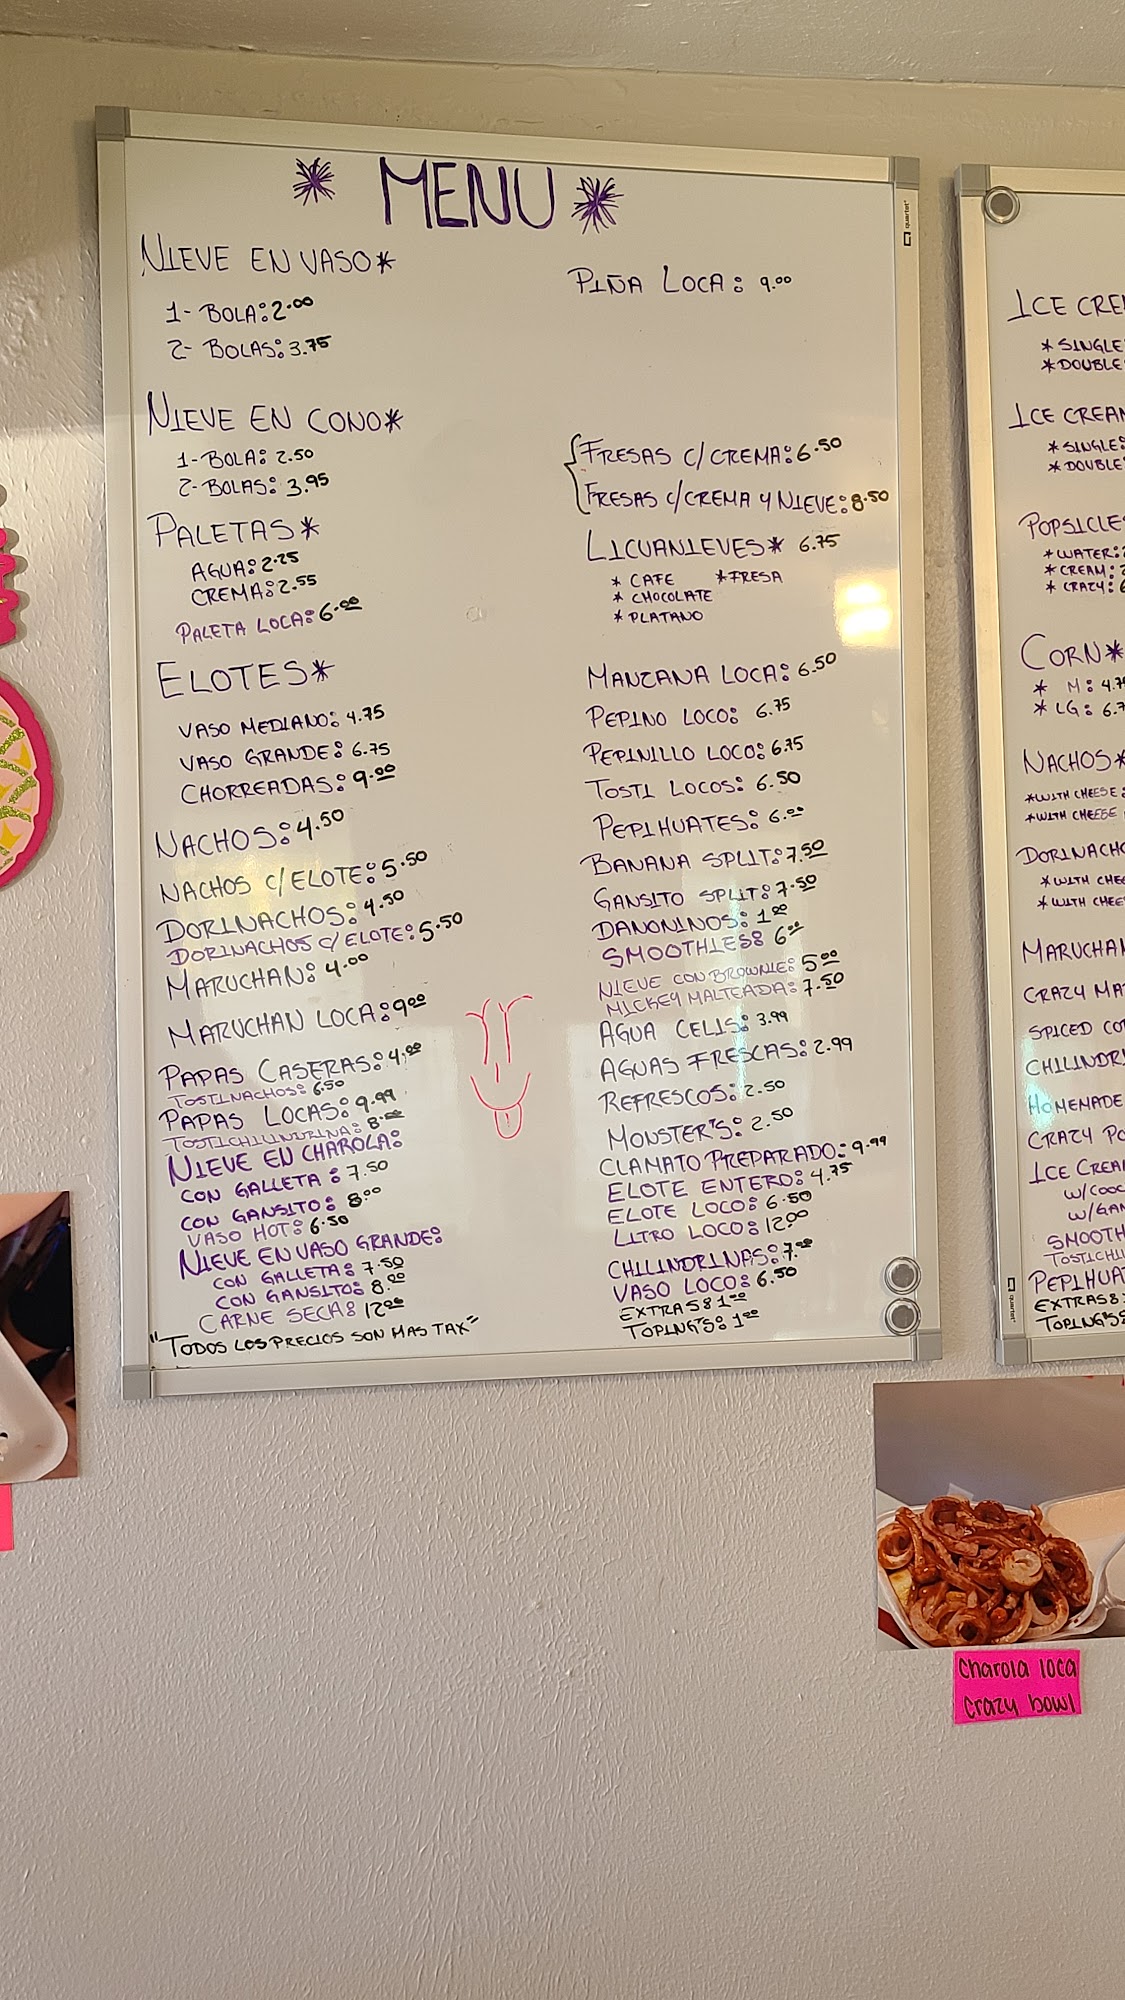 * MENU *
NIEVE EN VASO*
1- BOLA: 2.00
2- BOLAS: 3.75
NIEVE EN CONO*
1- BOLA: 2.50
2- BOLAS: 3.95
PALETAS*
AGUA: 2.25
CREMA: 2.55
PALETA LOCA: 6.00
ELOTES*
VASO MEDIANO: 4.75
VASO GRANDE: 6.75
CHORREADAS: 9.00
NACHOS: 4.50
NACHOS C/ELOTE: 5.50
DORINACHOS: 4.50
DORINACHOS C/ELOTE: 5.50
MARUCHAN: 4.00
MARUCHAN LOCA: 9.00
PAPAS CASERAS: 4.00
TOSTINACHOS: 6.50
PAPAS LOCAS: 9.99
TOSTICHILINDRINA: 8.00
NIEVE EN CHAROLA:
CON GALLETA: 7.50
CON GANSITO: 8.00
VASO HOT: 6.50
NIEVE EN VASO GRANDE:
CON GALLETA: 7.50
CON GANSITO: 8.00
CARNE SECA: 12.00
"TODOS LOS PRECIOS SON MAS TAX"
PIÑA LOCA: 9.00
FRESAS C/CREMA: 6.50
FRESAS C/CREMA Y NIEVE: 8.50
LICUANIEVES* 6.75
* CAFE *FRESA
* CHOCOLATE
* PLATANO
MANZANA LOCA: 6.50
PEPINO LOCO: 6.75
PEPINILLO LOCO: 6.75
TOSTI LOCOS: 6.50
PEPIHUATES: 6.00
BANANA SPLIT: 7.50
GANSITO SPLIT: 7.50
DANONINOS: 1.00
SMOOTHIES: 6.00
NIEVE CON BROWNIE: 5.00
MICKEY MALTEADA: 7.50
AGUA CELIS: 3.99
AGUAS FRESCAS: 2.99
REFRESCOS: 2.50
MONSTER'S: 2.50
CLAMATO PREPARADO: 9.99
ELOTE ENTERO: 4.75
ELOTE LOCO: 6.50
LITRO LOCO: 12.00
CHILINDRINAS: 7.00
VASO LOCO: 6.50
EXTRAS: 1.00
TOPING'S: 1.00
quartet
ICE CRE
*SINGLE
*DOUBLE
ICE CREAM
*SINGLE:
*DOUBLE
POPSICLE
*WATER:
*CREAM:
*CRAZY: 6
CORN*
* M: 4.7
* LG: 6.7
NACHOS*
*WITH CHEESE:
*WITH CHEESE
DORINACHO
*WITH CHE
*WITH CHEE
MARUCHAN
CRAZY MA
SPICED CO
CHILINDRI
HOMEMADE
CRAZY PO
ICE CREA
W/COO
W/GAN
SMOOTH
TOSTICHIL
PEPIHUAT
EXTRAS:
TOPING'S:
quartet
Charola loca
Crazy bowl